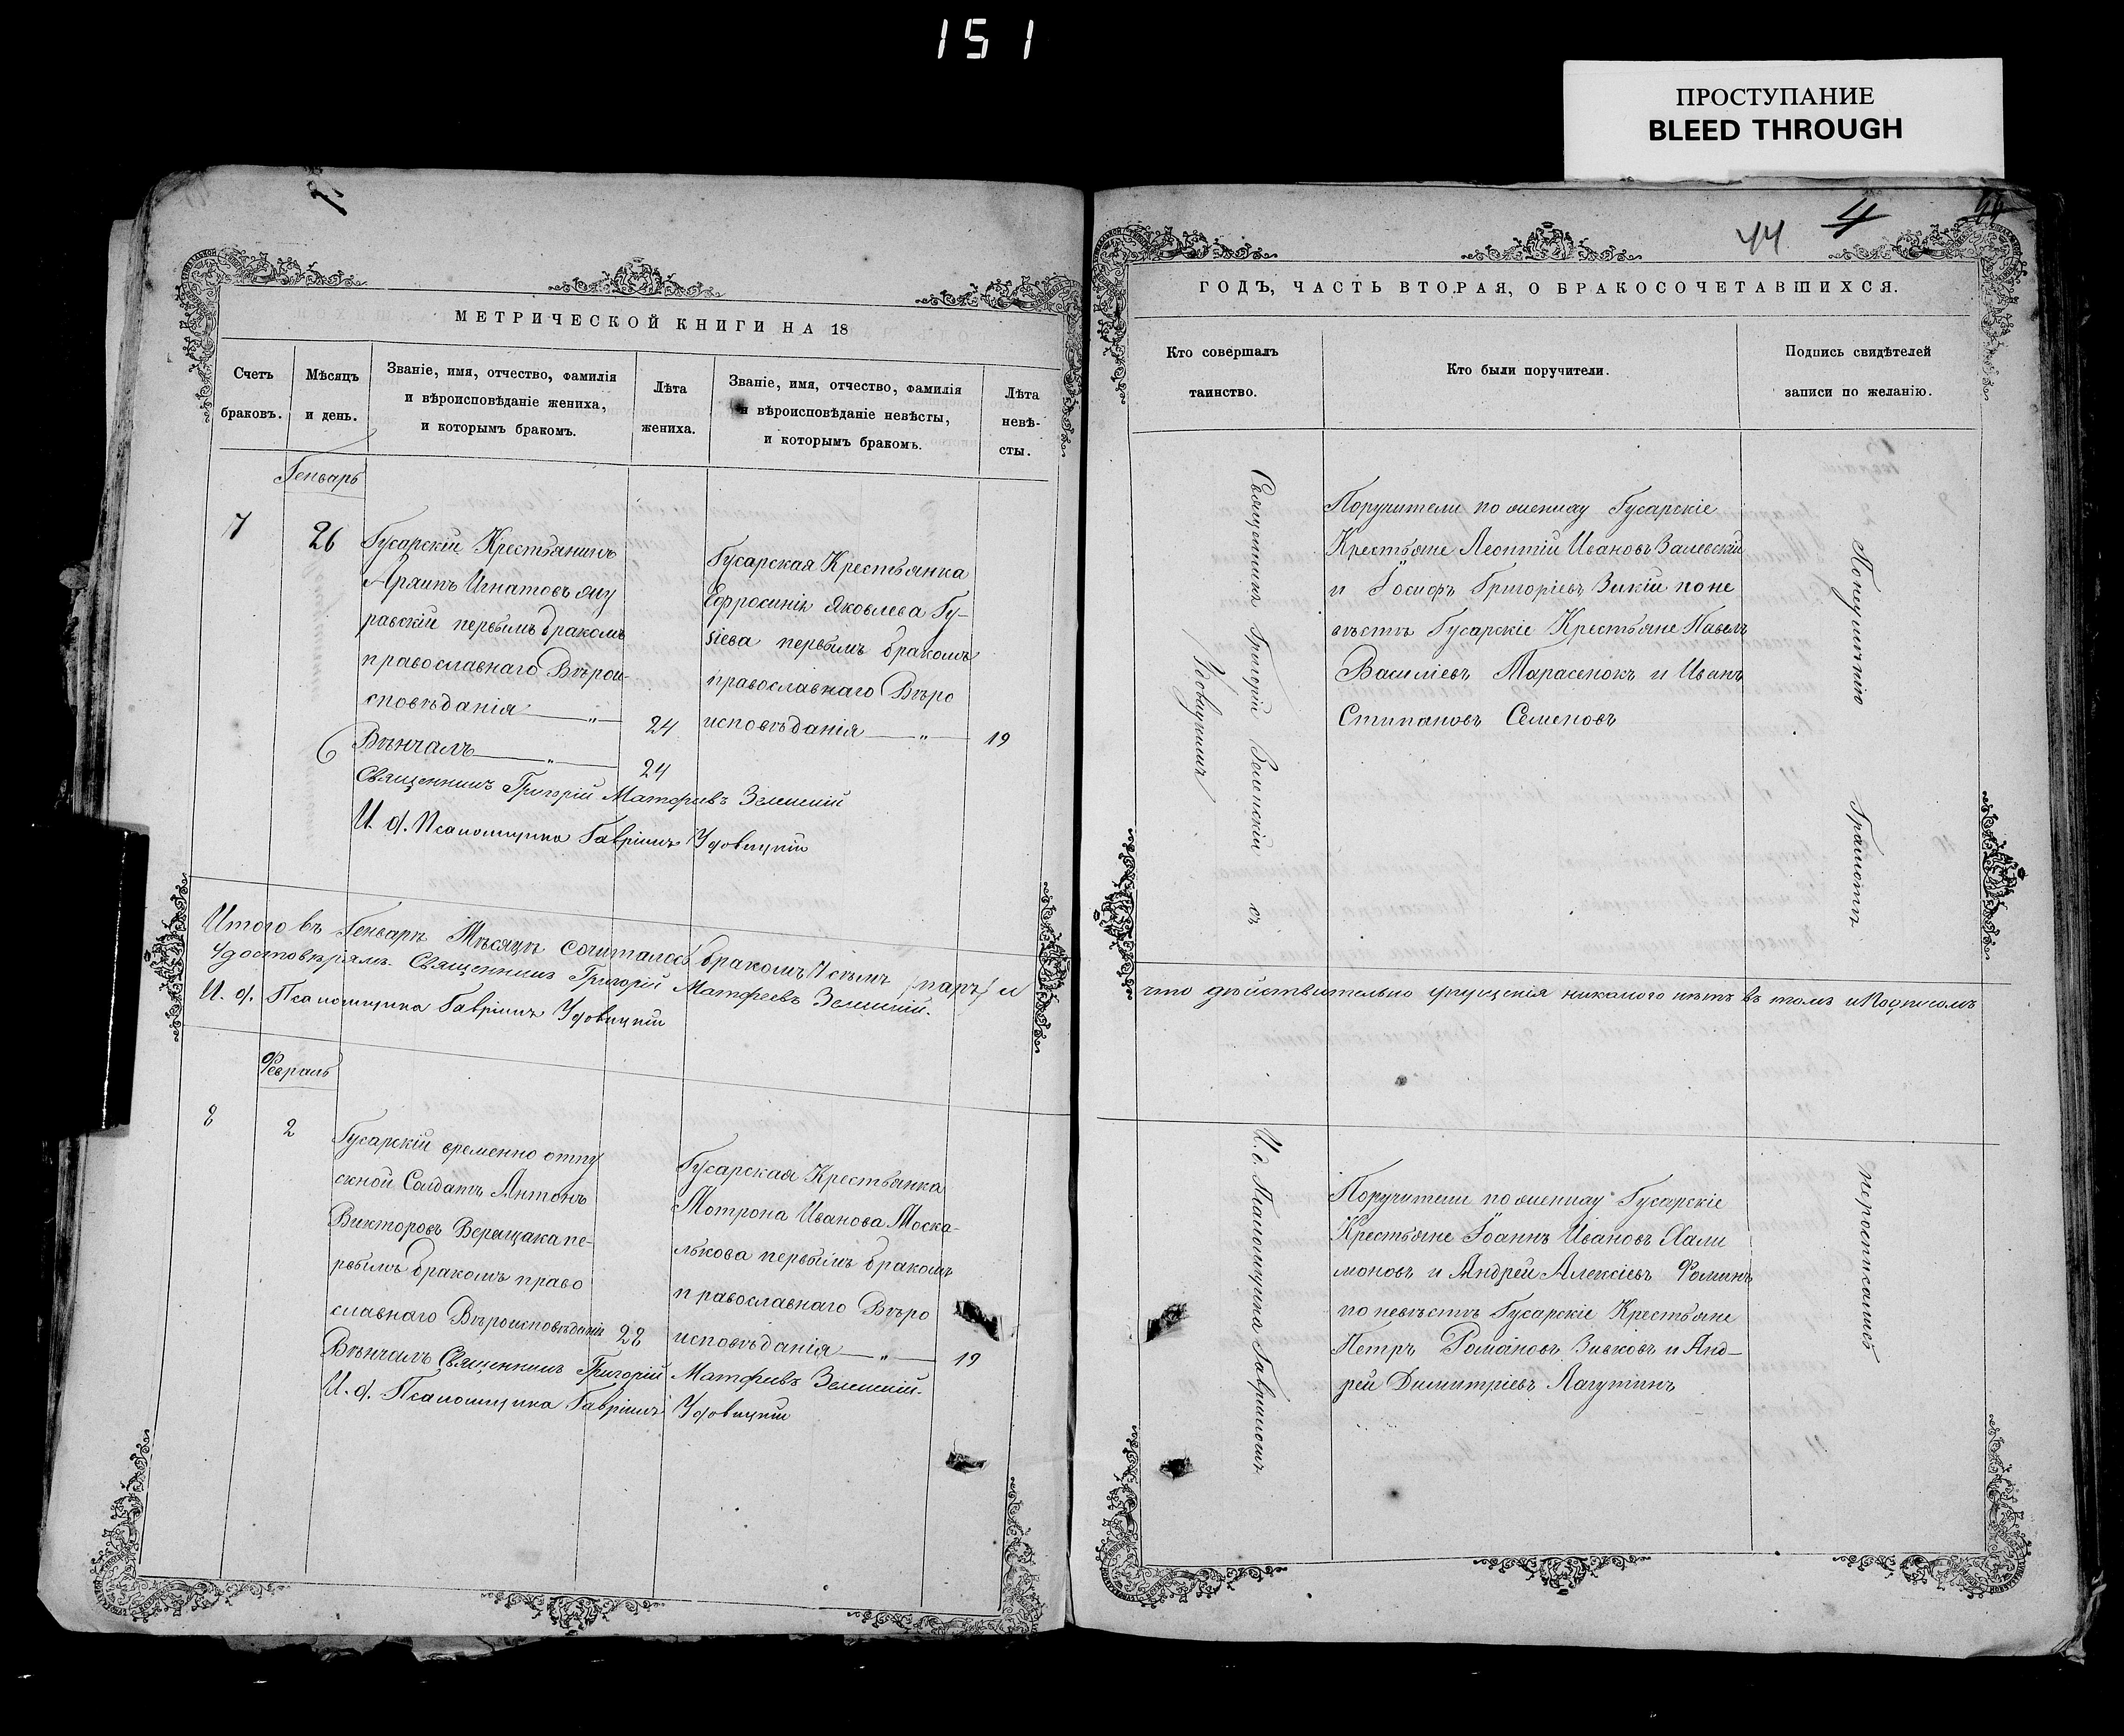 151
ПРОСТУПАНИЕ
BLEED THROUGH
МЕТРИЧЕСКОЙ КНИГИ НА 18
Счетъ браковъ.
Мѣсяцъ и день.
Званіе, имя, отчество, фамилія
и вѣроисповѣданіе жениха,
и которымъ бракомъ.
Лѣта жениха.
Званіе, имя, отчество, фамилія
и вѣроисповѣданіе невѣсты,
и которымъ бракомъ.
Лѣта невѣ-
сты.
Генварь
7
26
Гусарскій Крестьянинъ
Архипъ Игнатовъ
первымъ бракомъ
православнаго Вѣрои-
сповѣданія — „ —
24
Гусарская Крестьянка
Ефросинія Яковлева Гу-
сіева первымъ бракомъ
православнаго Вѣро
исповѣданія — „ —
19
Вѣнчалъ — „ —
24
Священникъ Григорій Матфѣевъ Зеленскій
И. д. Псаломщика Гавріилъ Удовицкій
Итого въ Генварѣ Мѣсяцѣ сочиталось бракомъ (паръ) и
Удостовѣряемъ. Священникъ Григорій Матфеевъ Зеленскій.
И. д. Псаломщика Гавріилъ Удовицкій
Февраль
8
2
Гусарскій временно отпу
скной Салдатъ Антонъ
Викторовъ Верещака пе-
рвымъ бракомъ право
славнаго Вѣроисповѣданія
28
Гусарская Крестьянка
Мотрона Иванова Моска-
лькова первымъ бракомъ
православнаго Вѣро
исповѣданія — „ —
19
Вѣнчалъ Священникъ Григорій Матфѣевъ Зеленскій.
И. д. Псаломщика Гавріилъ Удовицкій
44
4
ГОДЪ, ЧАСТЬ ВТОРАЯ, О БРАКОСОЧЕТАВШИХСЯ.
Кто совершалъ
таинство.
Кто были поручители.
Подпись свидѣтелей
записи по желанію.
Священникъ Григорій Зеленскій съ
Поручители по жениху Гусарскіе
Крестьяне Леонтій Ивановъ Залевскій
и Іосифъ Григоріевъ Зикій по не
вѣстѣ Гусарскіе Крестьяне Павелъ
Василіевъ Тарасенокъ и Иванъ
Стипановъ Семеновъ
По неумѣнію Грамотѣ
что дѣйствительно упущенія никакого нѣтъ въ томъ и Подписомъ
И. д. Псаломщика Гавріиломъ
Удовицкимъ
Поручители по жениху Гусарскіе
Крестьяне Іоаннъ Ивановъ Хали
моновъ и Андрей Алексіевъ Фоминъ
по невѣстѣ Гусарскіе Крестьяне
Петръ Романовъ Зивковъ и Анд-
рей Димитріевъ Лагутинъ
неросписались